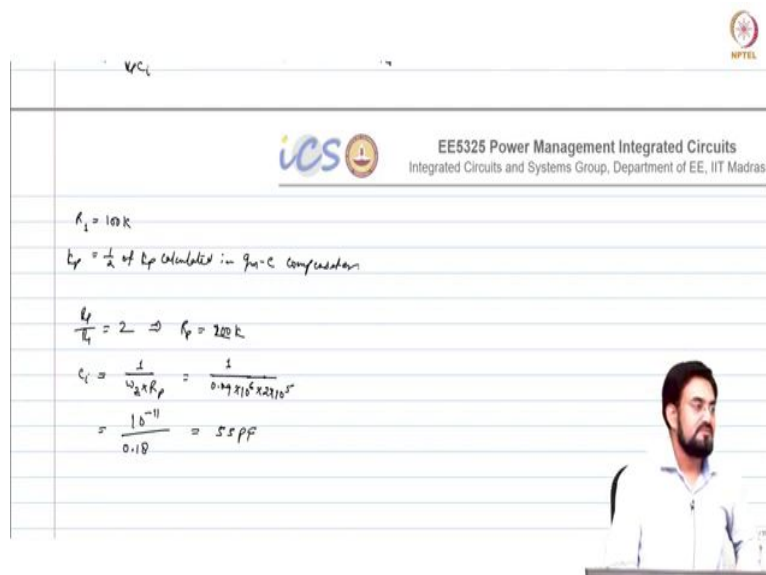 NPTEL
iCS
EE5325 Power Management Integrated Circuits
Integrated Circuits and Systems Group, Department of EE, IIT Madras
R₁ = 100k
kₚ = 1/2 of kₚ calculated in gm-c compensation
Rₚ/R₁ = 2 ⇒ Rₚ = 200k
Cᵢ = 1/(ω_z × Rₚ) = 1/(0.09×10⁶×2×10⁵)
= 10⁻¹¹/0.18 = 55pF